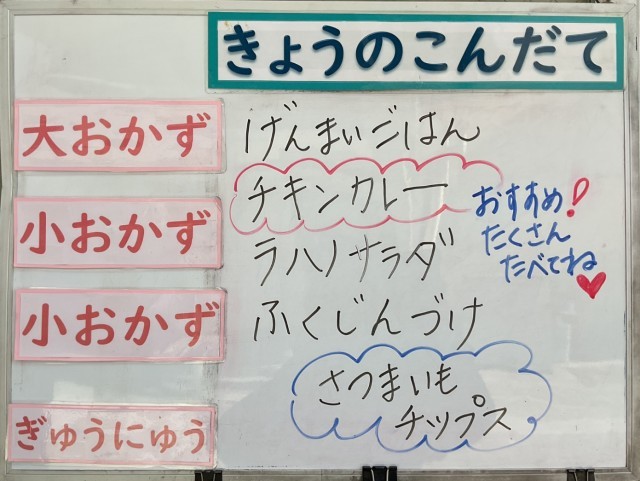 きょうのこんだて
大おかず
げんまいごはん
チキンカレー
小おかず
おすすめ!
たくさん
たべてね
ラハノサラダ
小おかず
ふくじんづけ
さつまいも
チップス
ぎゅうにゅう